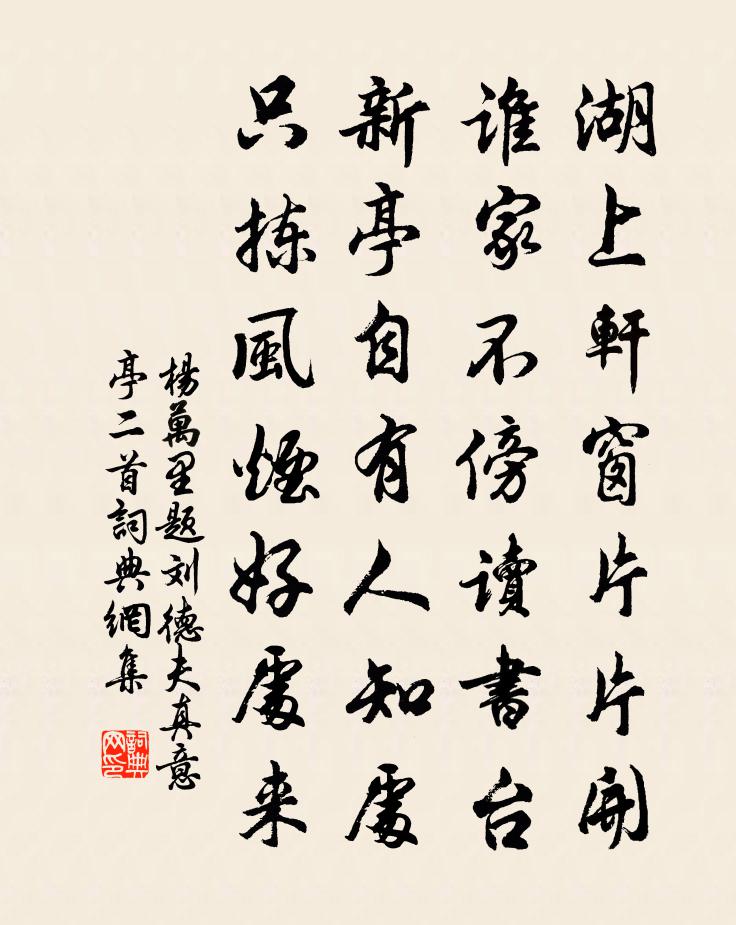 湖上軒窗片片開
誰家不傍讀書台
新亭自有人知處
只拣風煙好處来
楊萬里題刘德夫真意
亭二首詞典網集
詞典
网印